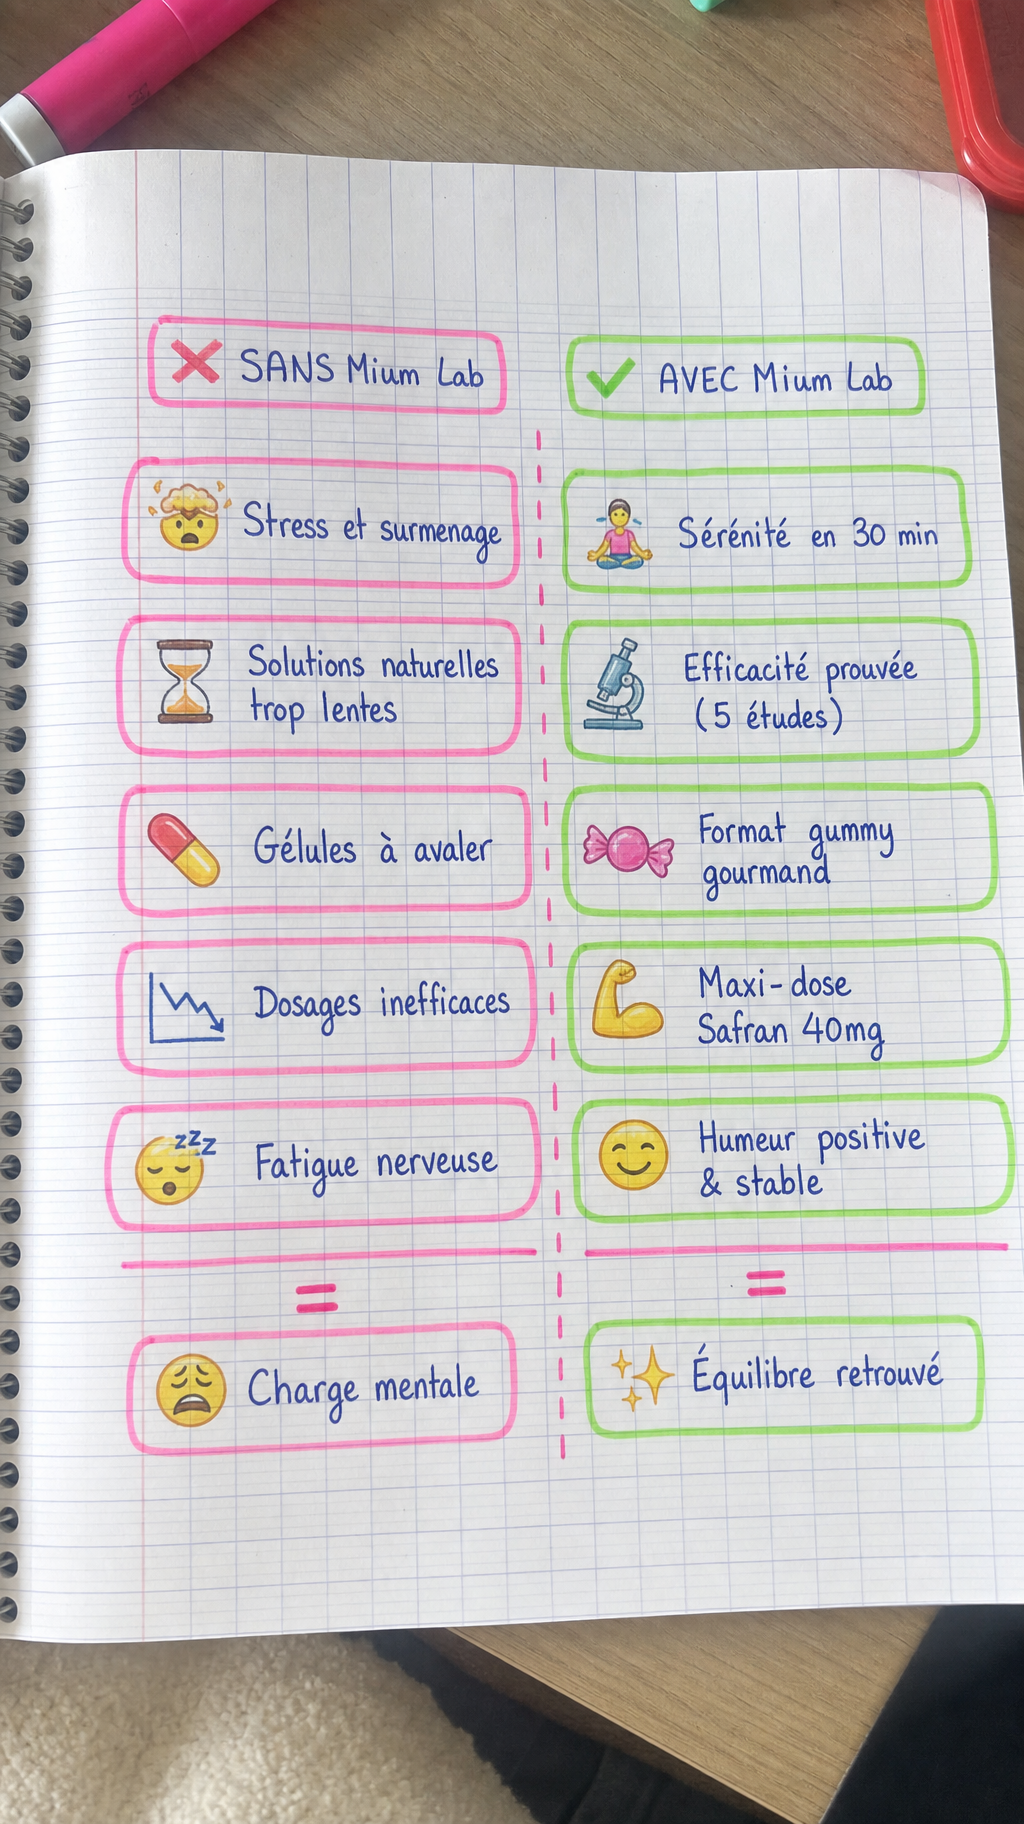 SANS Mium Lab
AVEC Mium Lab
Stress et surmenage
Sérénité en 30 min
Solutions naturelles
trop lentes
Efficacité prouvée
(5 études)
Gélules à avaler
Format gummy
gourmand
Dosages inefficaces
Maxi-dose
Safran 40mg
zzz
Fatigue nerveuse
Humeur positive
& stable
=
=
Charge mentale
Équilibre retrouvé